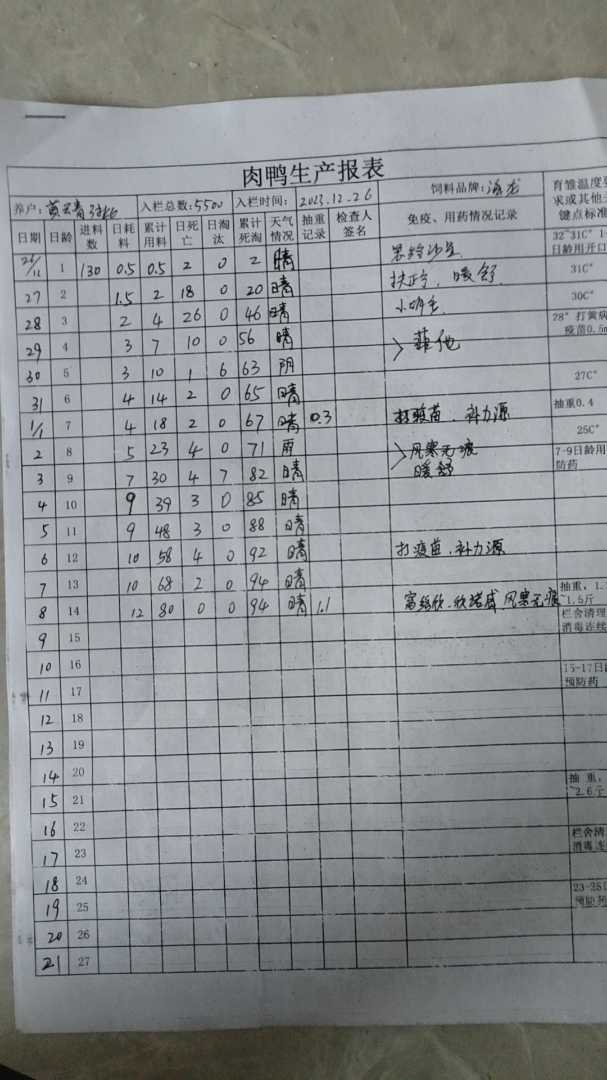 肉鸭生产报表
养户: 入栏总数:5500 入栏时间: 2023.12.26 饲料品牌: 育雏温度要求或其他关键点标准
日期 日龄 进料数 日耗料 累计用料 日死亡 日淘汰 累计死淘 天气情况 抽重记录 检查人签名 免疫、用药情况记录
1 130 0.5 0.5 2 0 2 晴 32~31C° 1- 日龄用开口
27 2 1.5 2 18 0 20 晴 扶正宁, 暖舒 31C°
28 3 2 4 26 0 46 晴 30C°
29 4 3 7 10 0 56 晴 28° 打黄病 疫苗0.5m
30 5 3 10 1 6 63 阴
31 6 4 14 2 0 65 晴 27C°
1/1 7 4 18 2 0 67 晴 0.3 打疫苗、补力源 抽重0.4
2 8 5 23 4 0 71 雨 风寒无痕 25C°
3 9 7 30 4 7 82 晴 暖舒 7-9日龄用 防药
4 10 9 39 3 0 85 晴
5 11 9 48 3 0 88 晴
6 12 10 58 4 0 92 晴 打疫苗、补力源
7 13 10 68 2 0 94 晴
8 14 12 80 0 0 94 晴 1.1 风寒无痕 抽重, 1. ~1.5斤
9 15 栏舍清理 消毒连续
10 16
11 17 15-17日 预防药
12 18
13 19
14 20
15 21 抽 重, ~2.6斤
16 22
17 23 栏舍清 消毒连
18 24
19 25 23-25 预防药
20 26
21 27